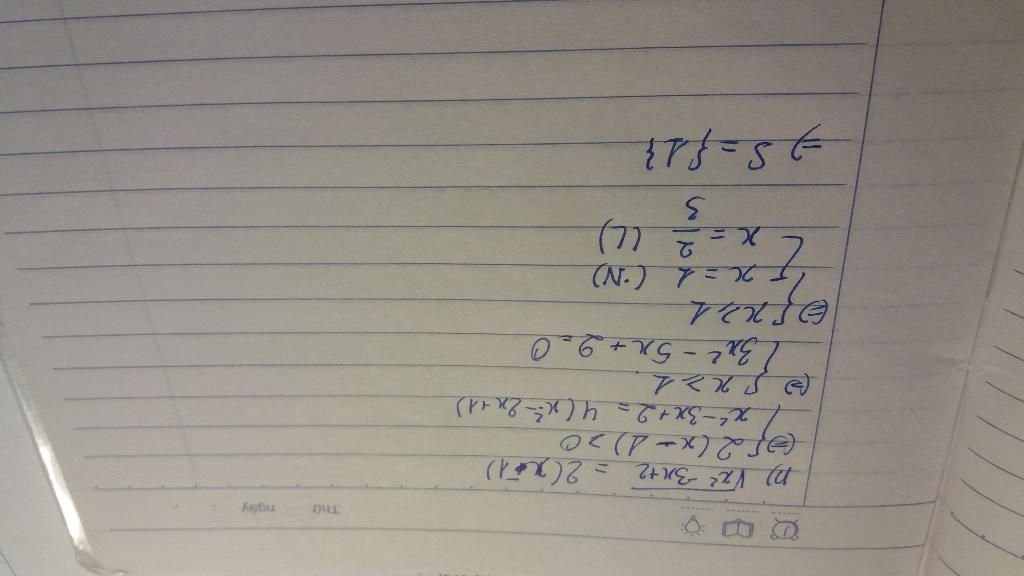 Thứ ngày
n) √x² - 3x + 2 = 2(x - 1)
⇔ { 2(x - 1) ≥ 0
x² - 3x + 2 = 4(x² - 2x + 1)
⇔ { x ≥ 1
3x² - 5x + 2 = 0
⇔ { x ≥ 1
[ x = 1 (N)
x = 2/3 (L)
⇒ S = {1}